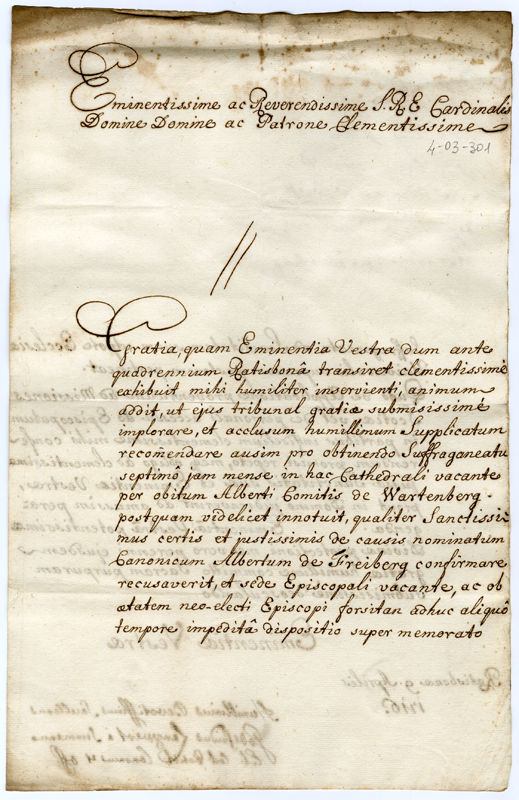 Eminentissime ac Reverendissime S.R.E Cardinalis
Domine Domine ac Patrone Clementissime
4-03-301
//
Gratia, quam Eminentia Vestra dum ante
quadrennium Ratisbonâ transiret clementissimè
exhibuit mihi humiliter inservienti, animum
addit, ut ejus tribunal gratiæ submisissimè
implorare, et acclusum humillimum Supplicatum
recom̄endare ausim pro obtinendo Suffraganeatu
septimô jam mense in hac Cathedrali vacante
per obitum Alberti Comitis de Wartenberg.
postquam videlicet innotuit, qualiter Sanctissi:
mus certis et justissimis de causis nominatum
Canonicum Albertum de Freiberg confirmare
recusaverit, et sede Episcopali vacante, ac ob
ætatem neo-electi Episcopi forsitan adhuc aliquô
tempore impeditâ dispositio super memorato